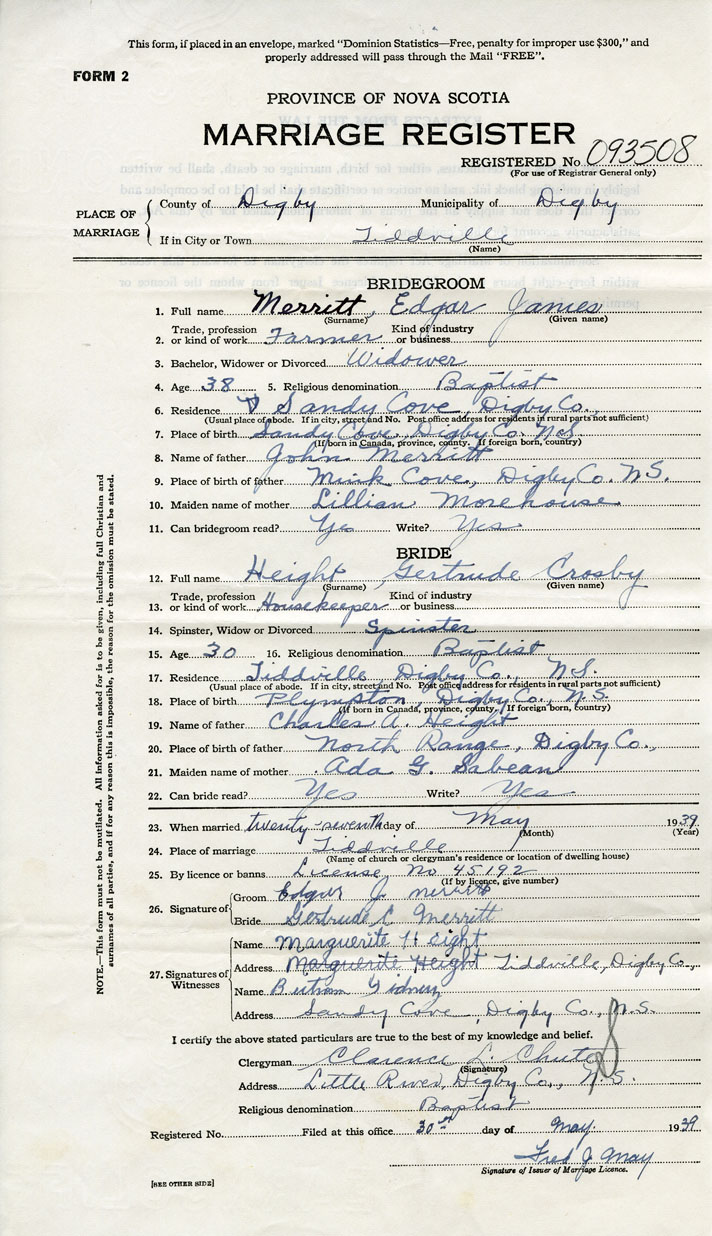 This form, if placed in an envelope, marked "Dominion Statistics—Free, penalty for improper use $300," and
properly addressed will pass through the Mail "FREE".
FORM 2
PROVINCE OF NOVA SCOTIA
MARRIAGE REGISTER
REGISTERED No. 093508
(For use of Registrar General only)
PLACE OF MARRIAGE
County of Digby Municipality of Digby
If in City or Town Tiddville
(Name)
BRIDEGROOM
1. Full name Merritt, Edgar James
(Surname) (Given name)
2. Trade, profession or kind of work Farmer Kind of industry or business
3. Bachelor, Widower or Divorced Widower
4. Age 38 5. Religious denomination Baptist
6. Residence Sandy Cove, Digby Co.,
(Usual place of abode. If in city, street and No. Post office address for residents in rural parts not sufficient)
7. Place of birth Sandy Cove Digby Co. N.S.
(If born in Canada, province, county. If foreign born, country)
8. Name of father John Merritt
9. Place of birth of father Mink Cove, Digby Co. N.S.
10. Maiden name of mother Lillian Morehouse
11. Can bridegroom read? Yes Write? Yes
BRIDE
12. Full name Height Gertrude Crosby
(Surname) (Given name)
13. Trade, profession or kind of work Housekeeper Kind of industry or business
14. Spinster, Widow or Divorced Spinster
15. Age 30 16. Religious denomination Baptist
17. Residence Tiddville, Digby Co., N.S.
(Usual place of abode. If in city, street and No. Post office address for residents in rural parts not sufficient)
18. Place of birth Plympton, Digby Co., N.S.
(If born in Canada, province, county. If foreign born, country)
19. Name of father Charles A. Height
20. Place of birth of father North Range, Digby Co.,
21. Maiden name of mother Ada G. Sabean
22. Can bride read? Yes Write? Yes
23. When married twenty-seventh day of May 1939
(Month) (Year)
24. Place of marriage Tiddville
(Name of church or clergyman's residence or location of dwelling house)
25. By licence or banns License, No 45192
(If by licence, give number)
26. Signature of
Groom Edgar J. Merritt
Bride Gertrude C Merritt
27. Signatures of Witnesses
Name Marguerite Height
Address Marguerite Height Tiddville, Digby Co.,
Name Bertram Gidney
Address Sandy Cove, Digby Co., N.S.
I certify the above stated particulars are true to the best of my knowledge and belief.
Clergyman Clarence L. Chute
(Signature)
Address Little River, Digby Co., N.S.
Religious denomination Baptist
Registered No. Filed at this office 30th day of May. 1939
Fred J May
Signature of Issuer of Marriage Licence.
[SEE OTHER SIDE]
NOTE.—This form must not be mutilated. All information asked for is to be given, including full Christian and
surnames of all parties, and if for any reason this is impossible, the reason for the omission must be stated.